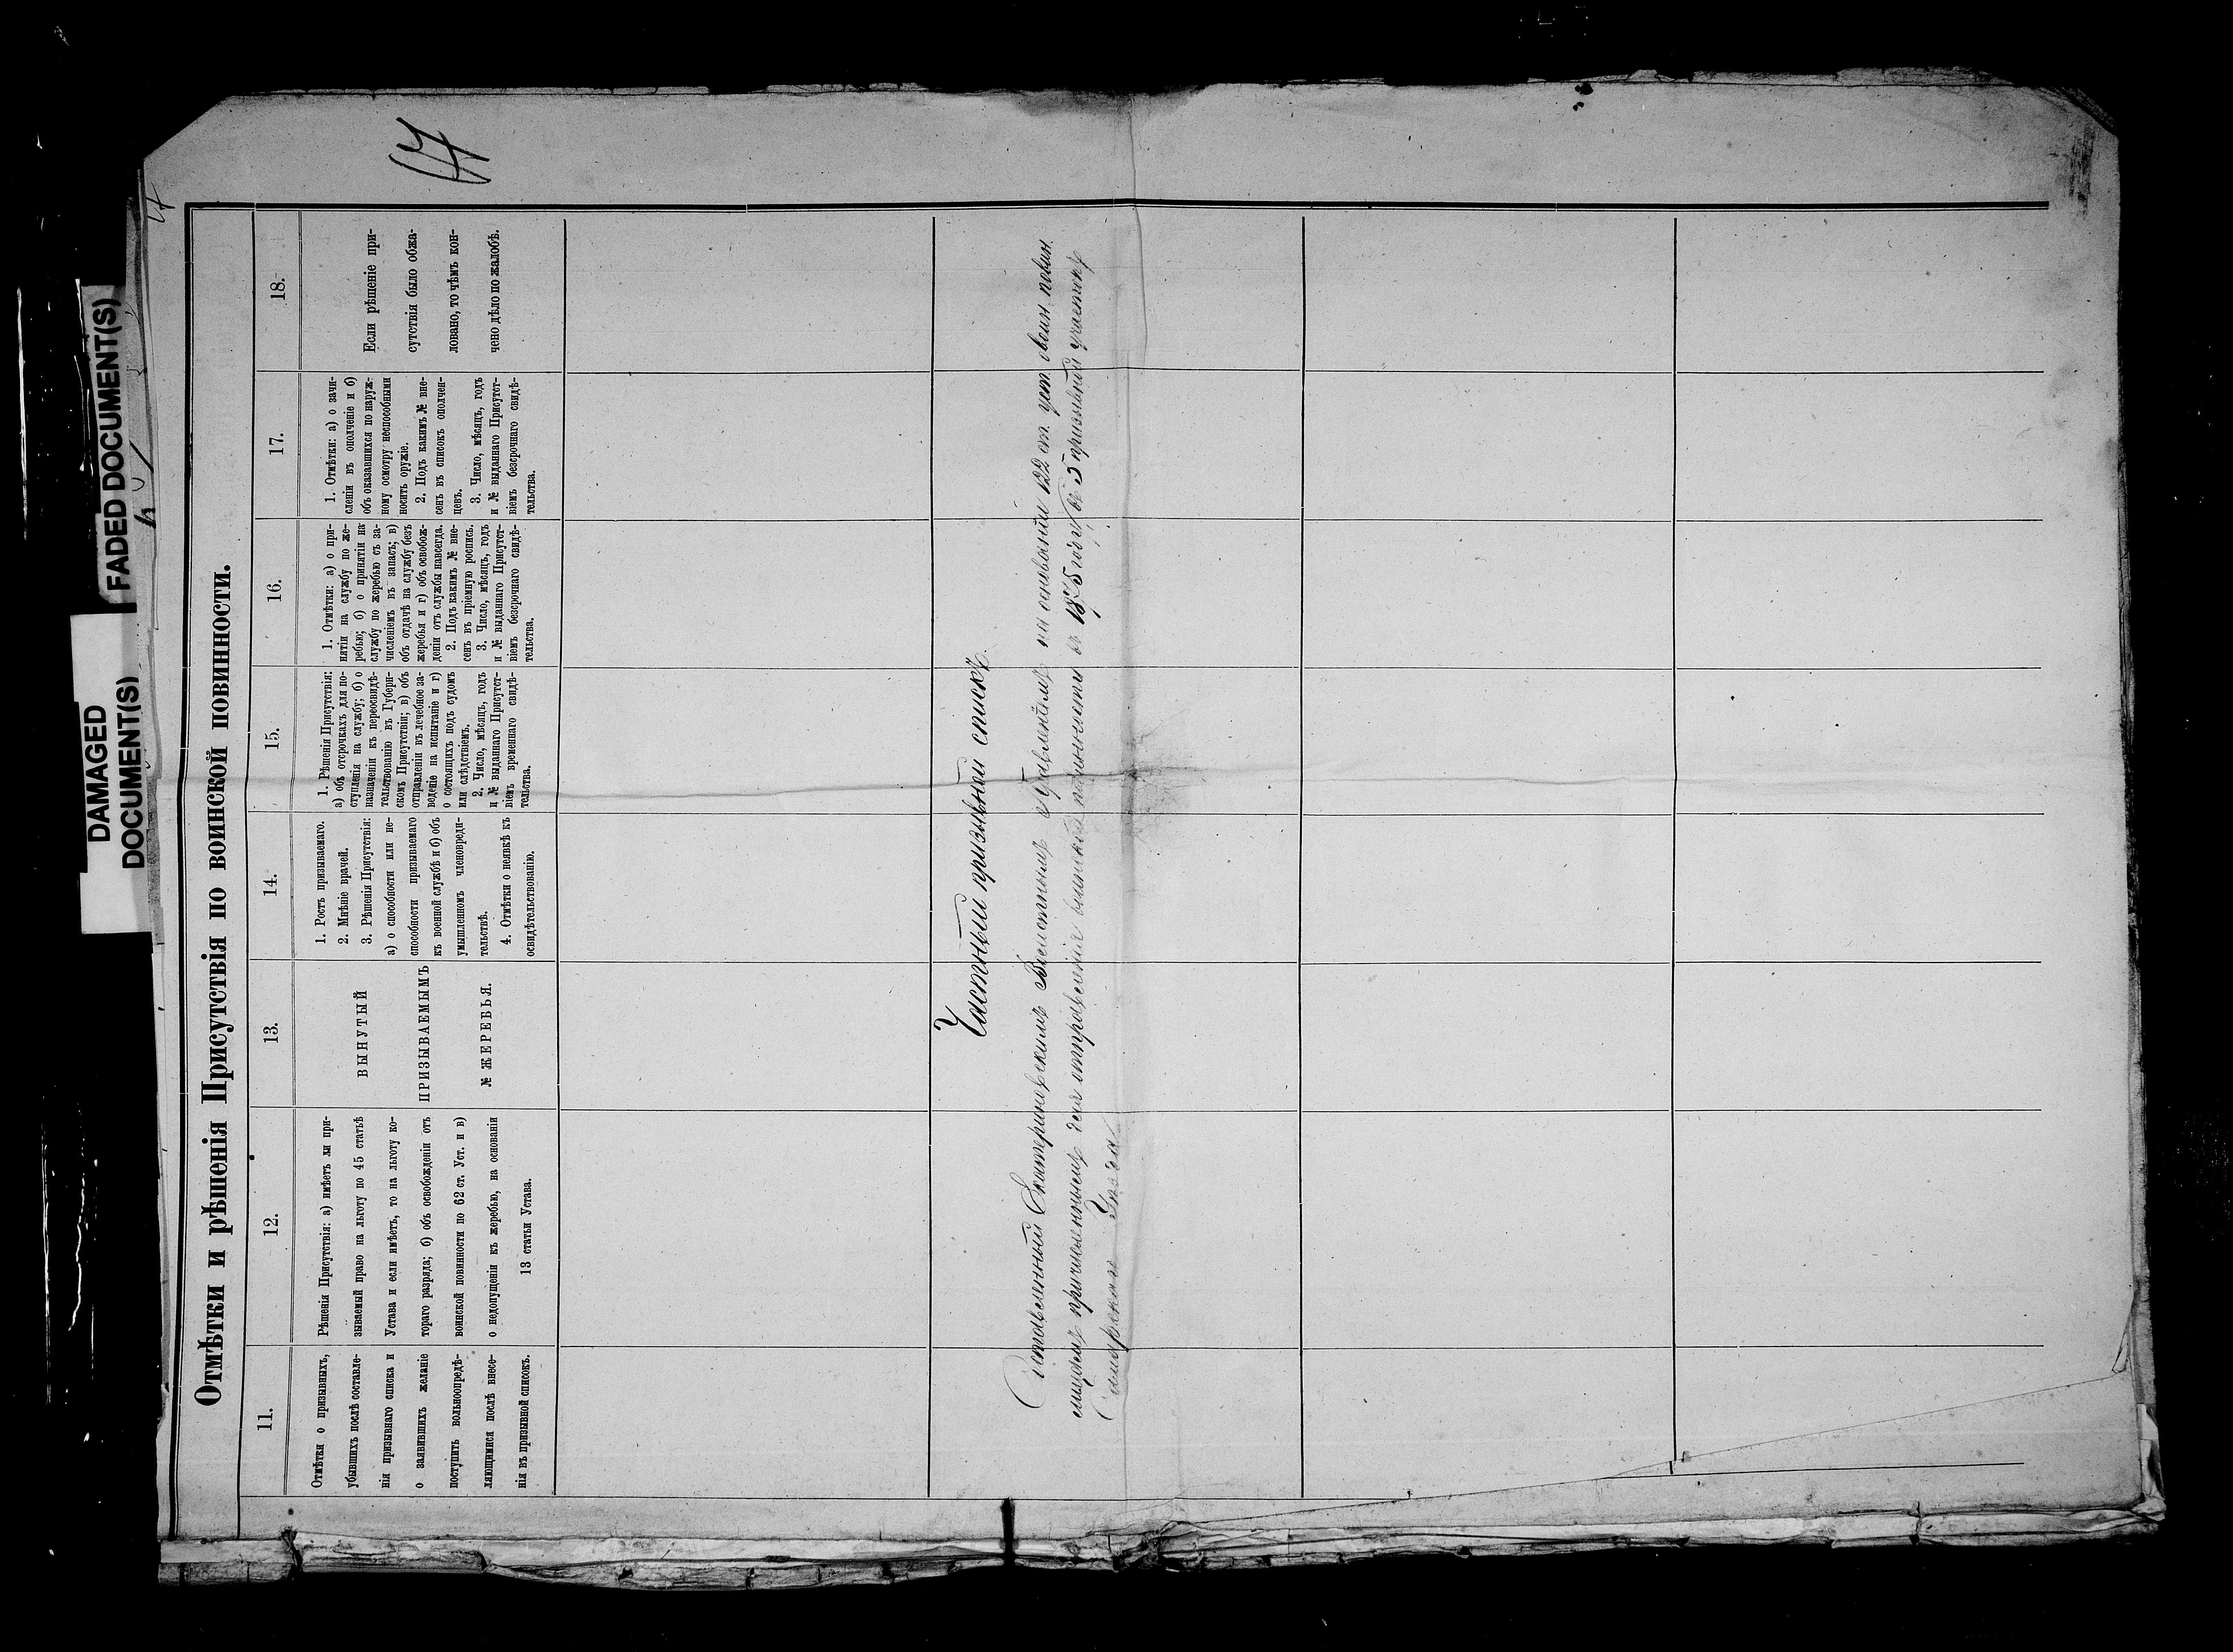 DAMAGED
DOCUMENT(S)
FADED DOCUMENT(S)
17
Отмѣтки и рѣшенія Присутствія по воинской повинности.
11.
Отмѣтки о призывныхъ,
убывшихъ послѣ составле-
нія призывнаго списка и
о заявившихъ желаніе
поступить вольноопредѣ-
ляющимися послѣ внесе-
нія въ призывной списокъ.
12.
Рѣшенія Присутствія: а) имѣетъ ли при-
зываемый право на льготу по 45 статьѣ
Устава и если имѣетъ, то на льготу ко-
тораго разряда; б) объ освобожденіи отъ
воинской повинности по 62 ст. Уст. и в)
о недопущеніи къ жеребью, на основаніи
13 статьи Устава.
13.
ВЫНУТЫЙ
ПРИЗЫВАЕМЫМЪ
№ ЖЕРЕБЬЯ.
14.
1. Ростъ призываемаго.
2. Мнѣніе врачей.
3. Рѣшенія Присутствія:
а) о способности или не-
способности призываемаго
къ военной службѣ и б) объ
умышленномъ членовреди-
тельствѣ.
4. Отмѣтки о неявкѣ къ
освидѣтельствованію.
15.
1. Рѣшенія Присутствія:
а) объ отсрочкахъ для по-
ступленія на службу; б) о
назначеніи къ переосвидѣ-
тельствованію въ Губерн-
скомъ Присутствіи; в) объ
отправленіи въ лечебное за-
веденіе на испытаніе и г)
о состоящихъ подъ судомъ
или слѣдствіемъ.
2. Число, мѣсяцъ, годъ
и № выданнаго Присутст-
віемъ временнаго свидѣ-
тельства.
16.
1. Отмѣтки: а) о при-
нятіи на службу по же-
ребью; б) о принятіи на
службу по жеребью съ за-
численіемъ въ запасъ; в)
объ отдачѣ на службу безъ
жеребья и г) объ освобож-
деніи отъ службы навсегда.
2. Подъ какимъ № вне-
сенъ въ пріемную роспись.
3. Число, мѣсяцъ, годъ
и № выданнаго Присутст-
віемъ безсрочнаго свидѣ-
тельства.
17.
1. Отмѣтки: а) о зачи-
сленіи въ ополченіе и б)
объ оказавшихся по наруж-
ному осмотру неспособными
носить оружіе.
2. Подъ какимъ № вне-
сенъ въ списокъ ополчен-
цевъ.
3. Число, мѣсяцъ, годъ
и № выданнаго Присутст-
віемъ безсрочнаго свидѣ-
тельства.
18.
Если рѣшеніе при-
сутствія было обжа-
ловано, то чѣмъ кон-
чено дѣло по жалобѣ.
Частный призывной списокъ.
Составленный Екатериновскимъ Волостнымъ Правленіемъ на основаніи 122 ст. уст. воин. повин.
лицамъ причисленнымъ для отправленія воинской повинности въ 1875 году въ 5 призывной участокъ
Самарскаго Уѣзда